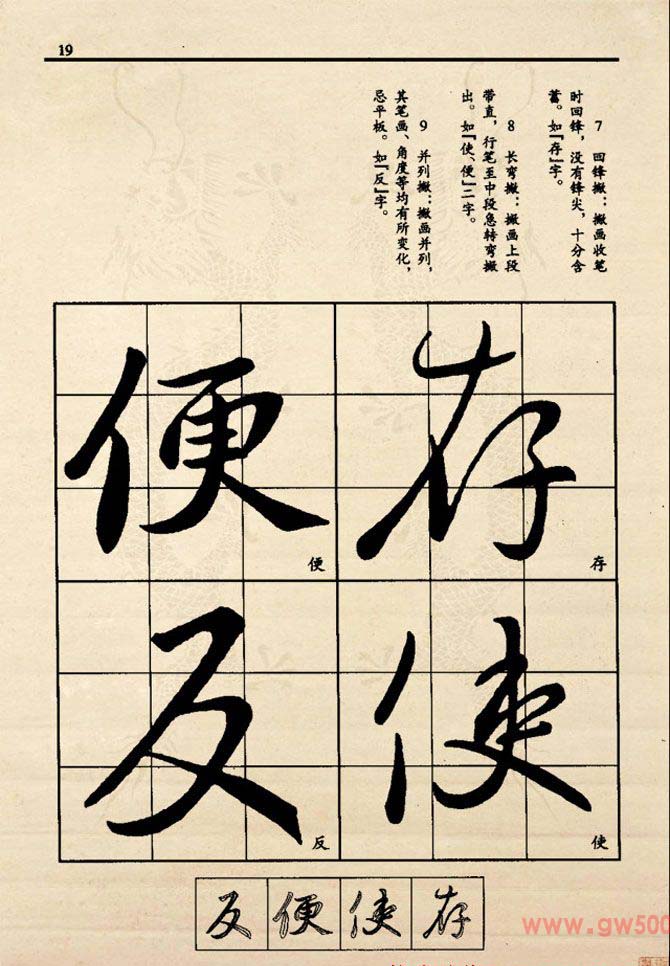 19
7 回锋撇：撇画收笔
时回锋，没有锋尖，十分含
蓄。如『存』字。
8 长弯撇：撇画上段
带直，行笔至中段急转弯撇
出。如『使、便』二字。
9 并列撇：撇画并列，
其笔画、角度等均有所变化，
忌平板。如『反』字。
存
存
使
使
便
便
反
反
存使便反
www.gw500